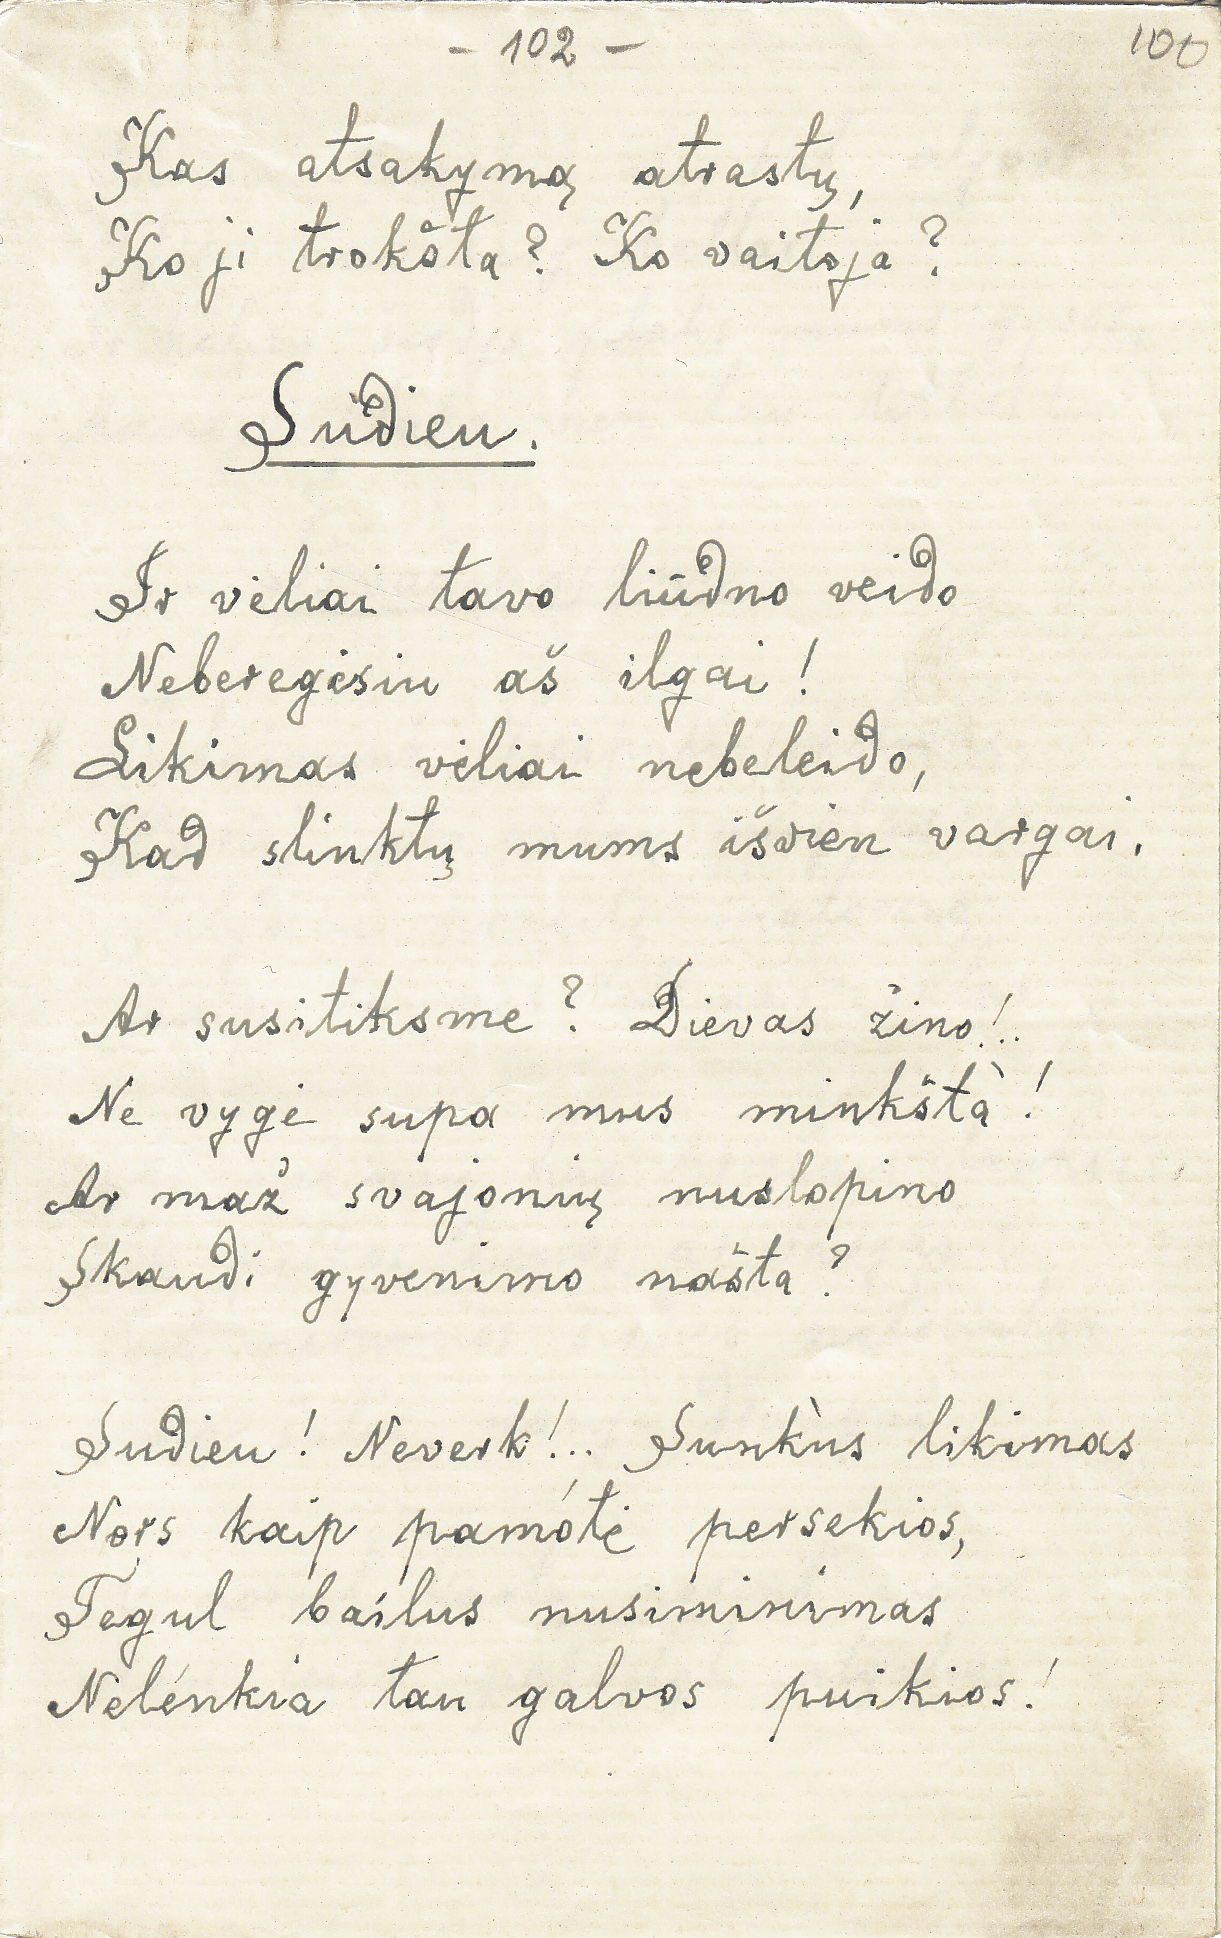 - 102 -
100
Kas atsakymą atrastų,
Ko ji trokšta? Ko vaitoja?
Sudieu.
Ir vėliai tavo liūdno veido
Neberegėsiu aš ilgai!
Likimas vėliai nebeleido,
Kad slinktų mums išvien vargai.
Ar susitiksme? Dievas žino!..
Ne vygė supa mus minkštà!
Ar maž svajonių nuslopino
Skaudi gyvenimo našta?
Sudieu! Neverk!.. Sunkùs likimas
Nors kaip pamótė persekios,
Tegul bailus nusiminimas
Nelénkia tau galvos puikios!